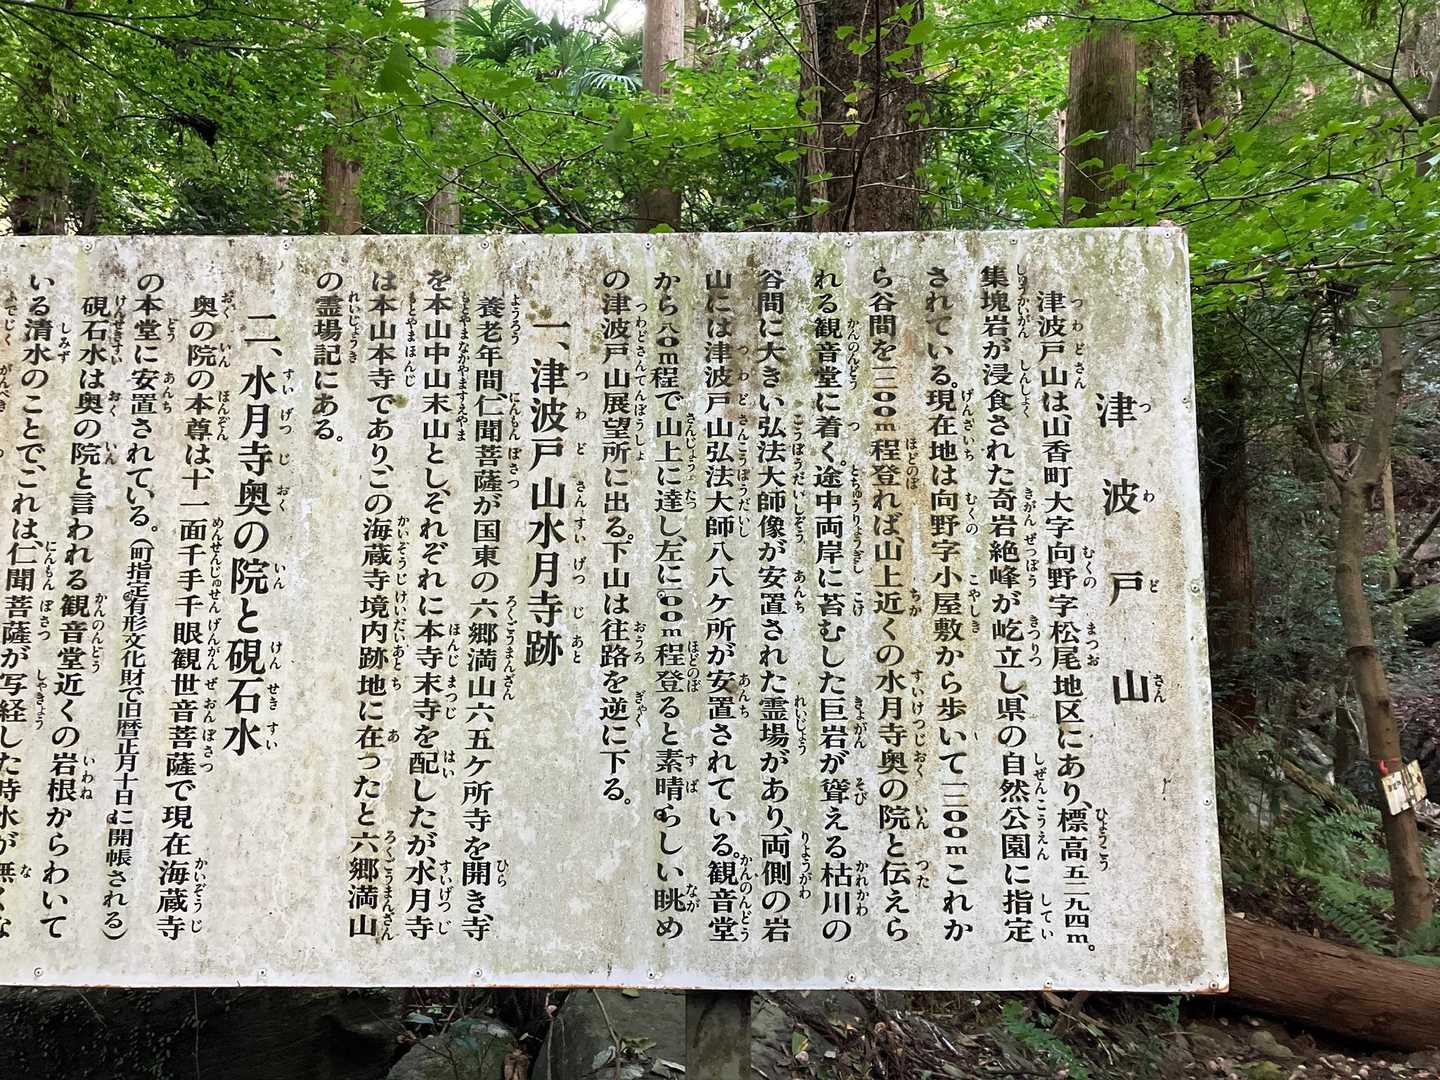 津波戸山
津波戸山は、山香町大字向野字松尾地区にあり、標高五二九四m。
集塊岩が浸食された奇岩絶峰が屹立し、県の自然公園に指定
されている。現在地は向野字小屋敷から歩いて一二〇〇mこれか
ら谷間を三〇〇m程登れば、山上近くの水月寺奥の院と伝えら
れる観音堂に着く。途中両岸に苔むした巨岩が聳える枯川の
谷間に大きい弘法大師像が安置された霊場があり、両側の岩
山には津波戸山弘法大師八八ケ所が安置されている。観音堂
から八〇m程で山上に達し、左に一〇〇m程登ると素晴らしい眺め
の津波戸山展望所に出る。下山は往路を逆に下る。
一、津波戸山水月寺跡
養老年間、仁聞菩薩が国東の六郷満山六五ケ所寺を開き、寺
を本山中山末山とし、それぞれに本寺末寺を配したが、水月寺
は本山本寺であり、この海蔵寺境内跡地に在つたと六郷満山
の霊場記にある。
二、水月寺奥の院と硯石水
奥の院の本尊は、十一面千手千眼観世音菩薩で現在海蔵寺
の本堂に安置されている。(町指定有形文化財で旧暦正月十日に開帳される)
硯石水は奥の院と言われる観音堂近くの岩根からわいて
いる清水のことで、これは、仁聞菩薩が写経した時水が無くな